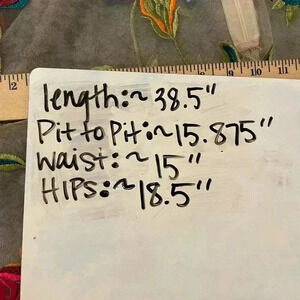 2 9 10 11
length:~38.5"
Pit to Pit:~15.875"
waist:~15"
HIPS:~18.5"